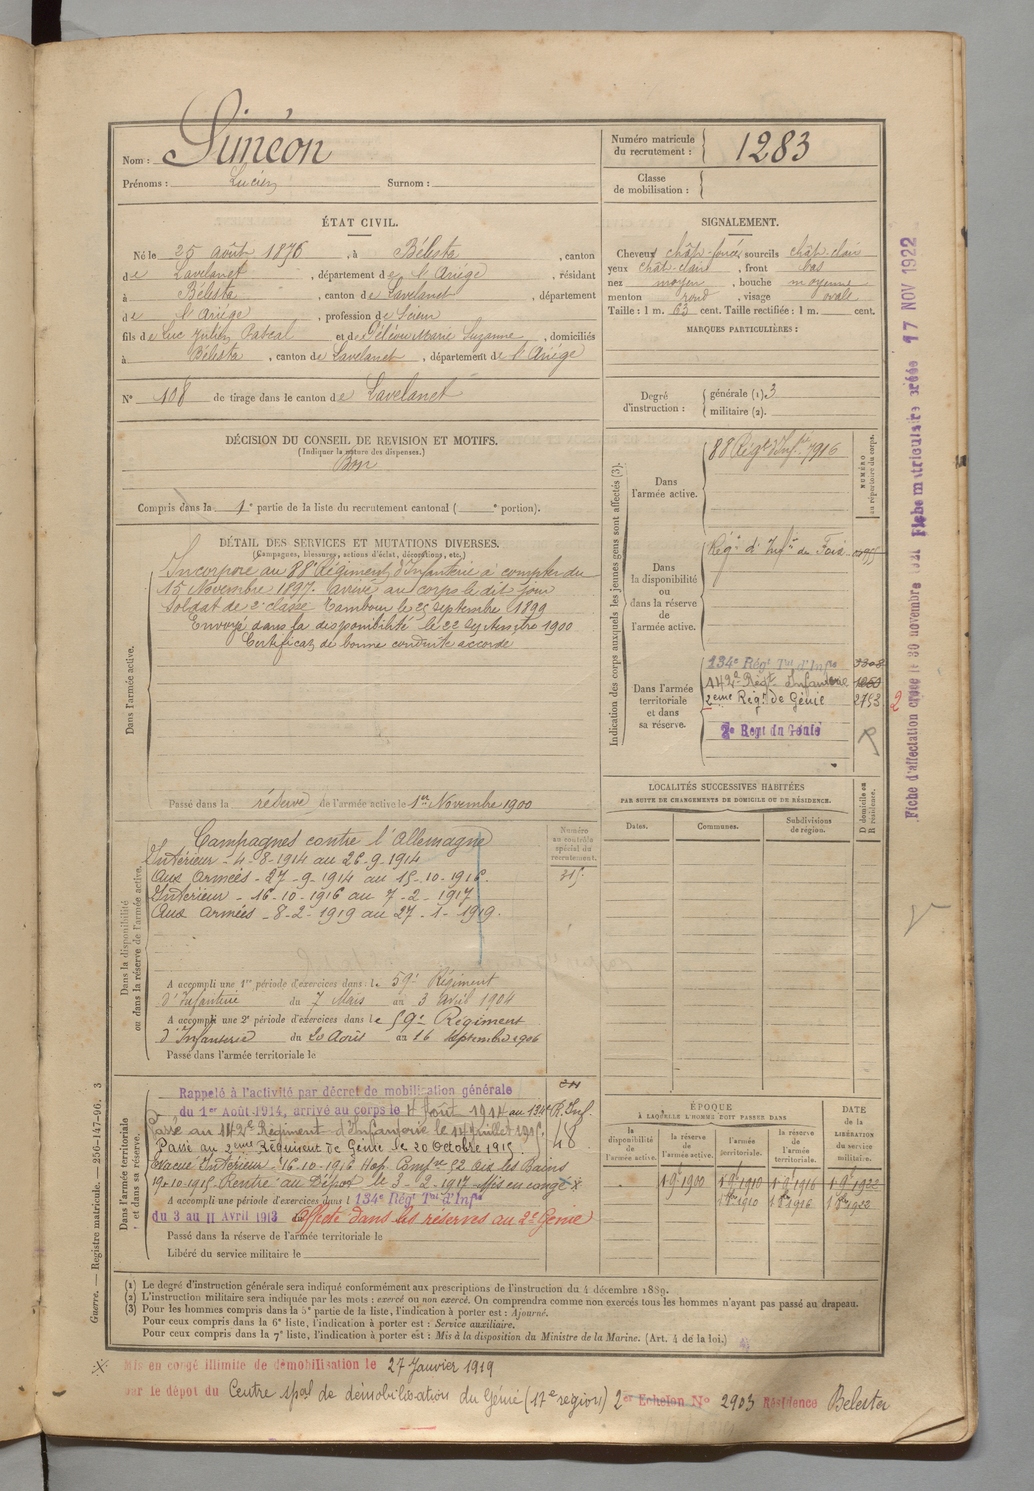 Nom : Siméon
Prénoms : Lucien Surnom :
Numéro matricule du recrutement : 1283
Classe de mobilisation :
ÉTAT CIVIL.
Né le 25 août 1876, à Bélesta, canton
de Lavelanet, département de l'Ariège, résidant
à Bélesta, canton de Lavelanet, département
de l'Ariège, profession de Scieur
fils de Luc Julien Pascal et de Marie Suzanne, domiciliés
à Bélesta, canton de Lavelanet, département de l'Ariège
N° 108 de tirage dans le canton de Lavelanet
SIGNALEMENT.
Cheveux chât-foncé, sourcils chât-clair
yeux chât-clair, front bas
nez moyen, bouche moyenne
menton rond, visage ovale
Taille : 1 m. 63 cent. Taille rectifiée : 1 m. cent.
MARQUES PARTICULIÈRES :
Degré d'instruction : générale (1). 3
militaire (2).
DÉCISION DU CONSEIL DE REVISION ET MOTIFS.
(Indiquer la nature des dispenses.)
Bon
Compris dans la 1e partie de la liste du recrutement cantonal ( e portion).
DÉTAIL DES SERVICES ET MUTATIONS DIVERSES.
(Campagnes, blessures, actions d'éclat, décorations, etc.)
Dans l'armée active.
Incorporé au 88e Régiment d'Infanterie à compter du
15 Novembre 1897. arrivé au corps le dit jour
Soldat de 2e classe Tambour le 25 Septembre 1899
Envoyé dans la disponibilité le 22 Septembre 1900
Certificat de bonne conduite accordé
Passé dans la réserve de l'armée active le 1er Novembre 1900
Indication des corps auxquels les jeunes gens sont affectés (3).
NUMÉRO au répertoire du corps.
Dans l'armée active. 88 Régt d'Infie 7916
Dans la disponibilité ou dans la réserve de l'armée active. Régt d'Infie de Foix
Dans l'armée territoriale et dans sa réserve.
134e Régt Tal d'Infie
142e Régt Infanterie
2eme Régt de Génie 2753
2e Regt du Génie
R
LOCALITÉS SUCCESSIVES HABITÉES
PAR SUITE DE CHANGEMENTS DE DOMICILE OU DE RÉSIDENCE.
Dates. Communes. Subdivisions de région. D domicile ou R résidence.
Dans la disponibilité ou dans la réserve de l'armée active.
Numéro au contrôle spécial du recrutement.
315
Campagnes contre l'Allemagne
Intérieur - 4-8-1914 au 26-9-1914
Aux Armées - 27-9-1914 au 15-10-1916.
Intérieur - 16-10-1916 au 7-2-1917
Aux Armées - 8-2-1919 au 27-1-1919.
A accompli une 1re période d'exercices dans : le 59e Régiment
d'Infanterie du 7 Mars au 3 avril 1904
A accompli une 2e période d'exercices dans le 59e Régiment
d'Infanterie du 20 Août au 16 Septembre 1906
Passé dans l'armée territoriale le
Dans l'armée territoriale et dans sa réserve.
Rappelé à l'activité par décret de mobilisation générale
du 1er Août 1914, arrivé au corps le 4 Août 1914 au 134e R. Inf.
Passé au 142e Régiment d'Infanterie le 14 Juillet 1915.
Passé au 2eme Régiment de Génie le 20 Octobre 1915.
48
Evacué Intérieur - 16-10-1916 Hop. Compre 52 Aix les Bains
Rentré au Dépôt le 3-2-1917 Mis en congé x
A accompli une période d'exercices dans l 134e Régt Tal d'Infie
du 3 au 11 Avril 1913 Affecté dans les réserves au 2e Génie
Passé dans la réserve de l'armée territoriale le
Libéré du service militaire le
ÉPOQUE
À LAQUELLE L'HOMME DOIT PASSER DANS
DATE DE LA LIBÉRATION DU SERVICE militaire.
la disponibilité de l'armée active. la réserve de l'armée active. l'armée territoriale. la réserve de l'armée territoriale.
1 9e 1900 1 9e 1910 1 9e 1916 1 9e 1922
1 8bre 1910 1 8bre 1916 1 8bre 1922
(1) Le degré d'instruction générale sera indiqué conformément aux prescriptions de l'instruction du 4 décembre 1889.
(2) L'instruction militaire sera indiquée par les mots : exercé ou non exercé. On comprendra comme non exercés tous les hommes n'ayant pas passé au drapeau.
(3) Pour les hommes compris dans la 5e partie de la liste, l'indication à porter est : Ajourné.
Pour ceux compris dans la 6e liste, l'indication à porter est : Service auxiliaire.
Pour ceux compris dans la 7e liste, l'indication à porter est : Mis à la disposition du Ministre de la Marine. (Art. 4 de la loi.)
Guerre. — Registre matricule. — 256-147-96. 3
x Mis en congé illimité de démobilisation le 27 Janvier 1919
par le dépôt du Centre spal de démobilisation du Génie (17e région) 2e Echelon N° 2903 Résidence Belesta
Fiche d'affectation créée le 30 novembre
Fiche matriculaire créée 17 NOV 1922
2